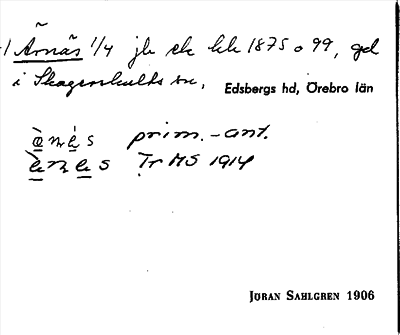 Årnäs 1/4 jb sk kk 1875 o 99, gd
i Skagershults sn, Edsbergs hd, Örebro län
prim.-ant.
Tr MS 1914
JÖRAN SAHLGREN 1906